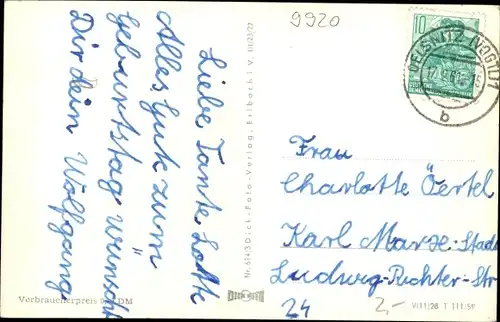 9920
10
OELSNITZ (VOGTL) 1
b
Liebe Tante Lotte
Alles Gute zum
Geburtstag wünscht
Dir dein Wolfgang
Verbraucherpreis DM
Nr. 614/3 Dick-Foto-Verlag, Erlbach i. V. III/23/27
DICK FOTO
Frau
Charlotte Oertel
Karl-Marx-Stadt
Ludwig-Richter-Str.
24
2,-
V/11/28 T 111/59